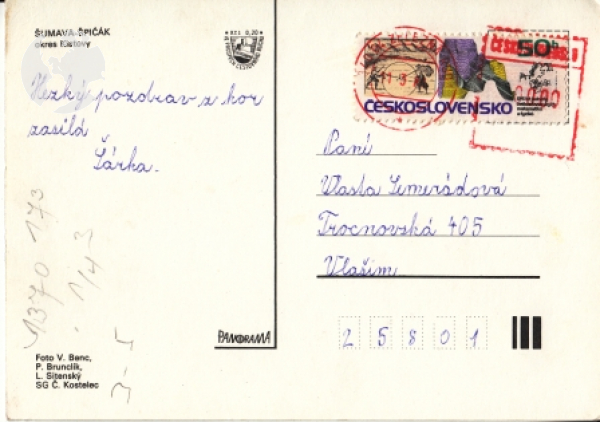 ŠUMAVA-ŠPIČÁK
okres Klatovy
Hezký pozdrav z hor
zasílá
Šárka.
1370 173
1/43
Foto V. Benc,
P. Brunclík,
L. Sitenský
SG Č. Kostelec
PANORAMA
50h
ČESKOSLOVENSKO
Paní
Vlasta Semerádová
Trocnovská 405
Vlašim
25801